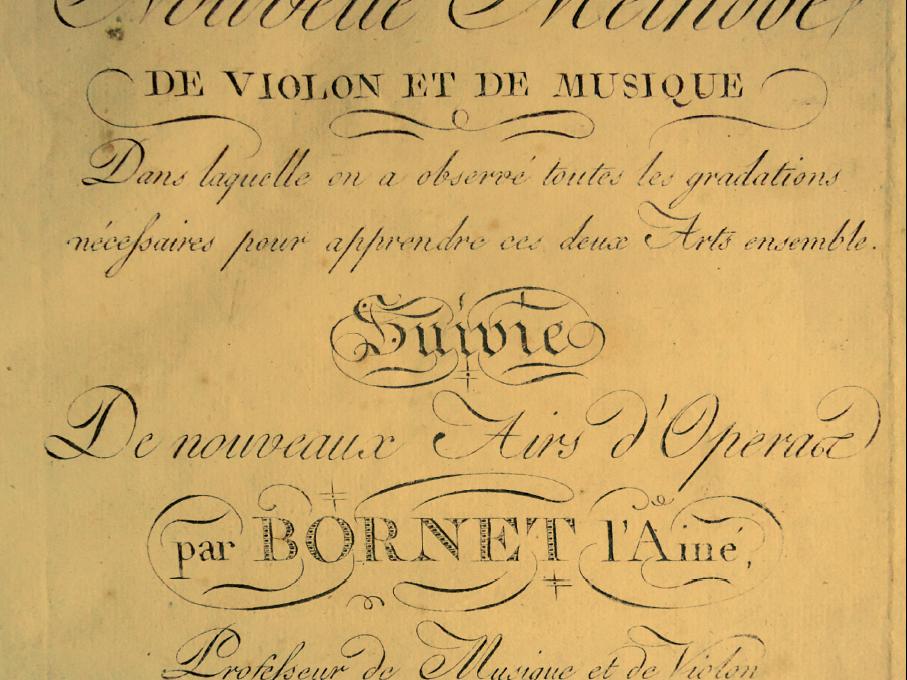 Nouvelle Méthode
DE VIOLON ET DE MUSIQUE
Dans laquelle on a observé toutes les gradations
néceſsaires pour apprendre ces deux Arts ensemble.
Suivie
De nouveaux Airs d'Opera &
par BORNET l'Ainé,
Profeſseur de Musique et de Violon